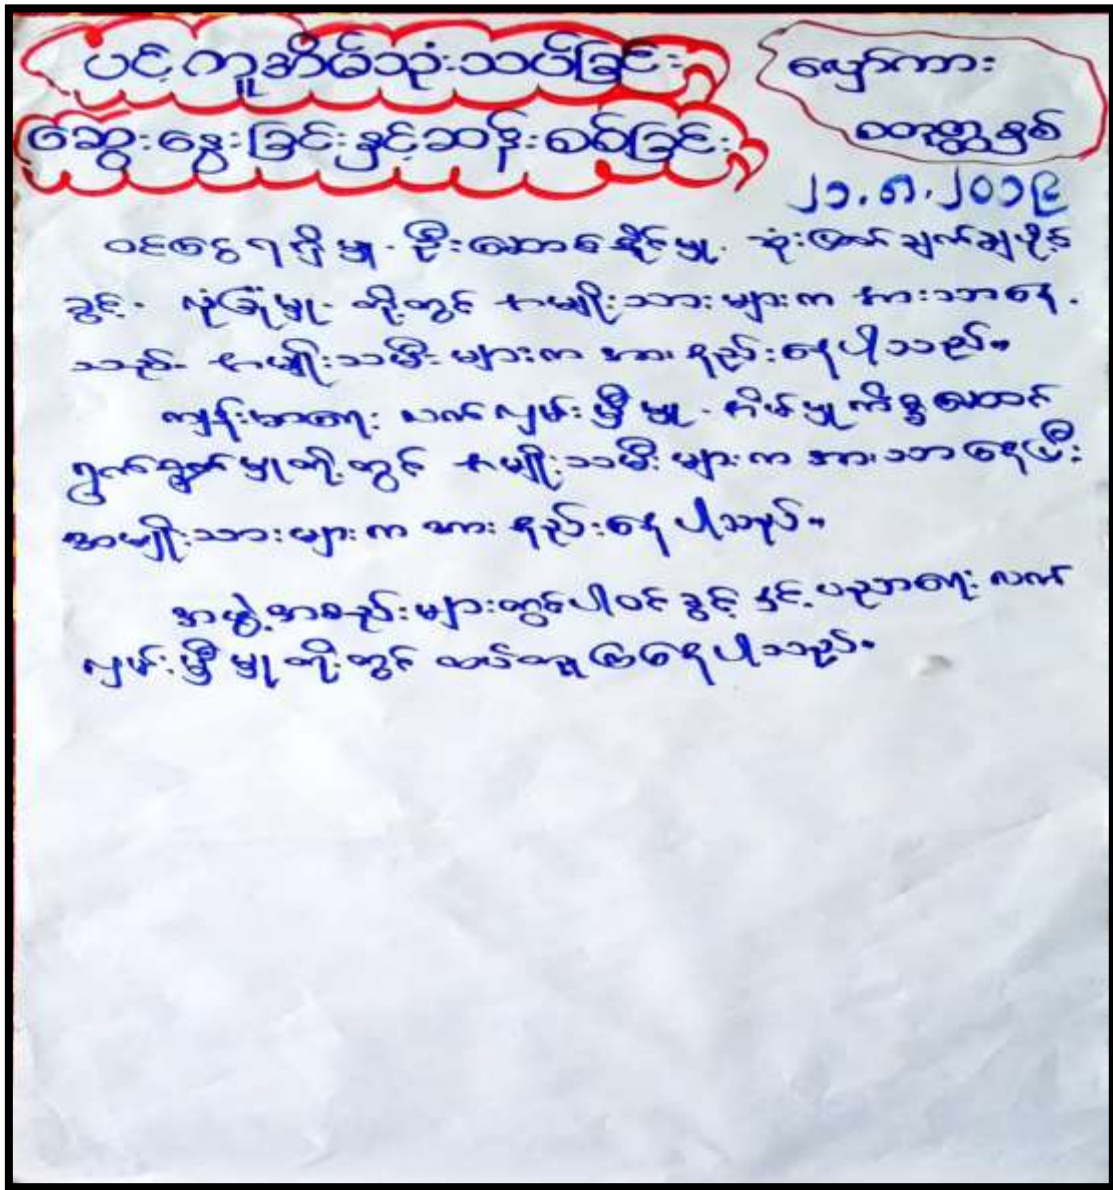 ပင့်ကူအိမ်သုံးသပ်ခြင်း
ဆွေးနွေးခြင်းနှင့်ဆန်းစစ်ခြင်း
မျှော်ကား
စတုတ္ထနှစ်
၂၁.၈.၂၀၁၉
ဝင်ငွေရရှိမှု - ဦးဆောင်နိုင်မှု - ဆုံးဖြတ်ချက်ချပိုင်
ခွင့် - လုံခြုံမှု - တို့တွင် အမျိုးသားများက အားသာနေ -
သည် - အမျိုးသမီးများက အားနည်းနေပါသည်။
ကျန်းမာရေး လက်လှမ်းမှီမှု - အိမ်မှုကိစ္စဆောင်
ရွက်မှုတို့တွင် အမျိုးသမီးများက အားသာနေပြီး
အမျိုးသားများက အားနည်းနေပါသည်။
အဖွဲ့အစည်းများတွင်ပါဝင်ခွင့် နှင့် ပညာရေး လက်
လှမ်းမှီမှုတို့တွင် ထပ်တူကြနေပါသည်။